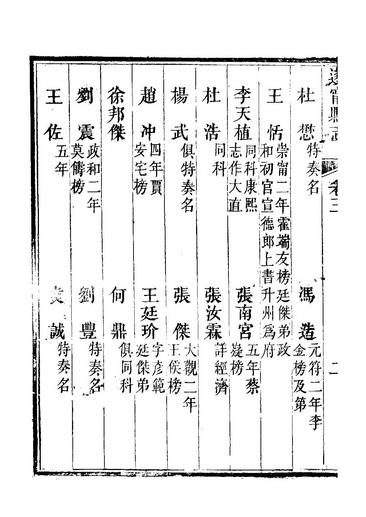 遂甯縣志 卷三 二
杜懋 特奏名
馮造 元符二年李金榜及第
王㤚 崇甯二年霍端友榜廷傑弟政和初官宣德郎上書升州為府
李天植 同科康熙志作大直
張南宮 五年蔡嶷榜
杜浩 同科
張汝霖 詳經濟
楊武 俱特奏名
張傑 大觀二年王俟榜
趙冲 四年賈安宅榜
王廷玠 字彥範廷傑弟
徐邦傑
何鼎 俱同科
劉震 政和二年莫儔榜
劉豐 特奏名
王佐 五年
誠 特奏名